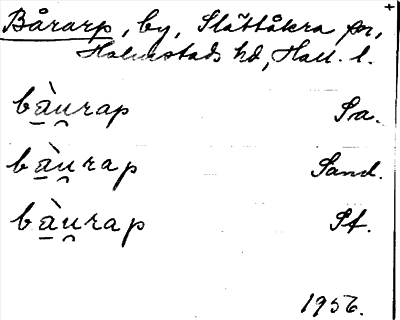 Bårarp, by, Slättåkra sn,
Halmstads hd, Hall. l.
bàu̯rap Sa.
bàu̯rap Sand.
bàu̯rap St.
1956.